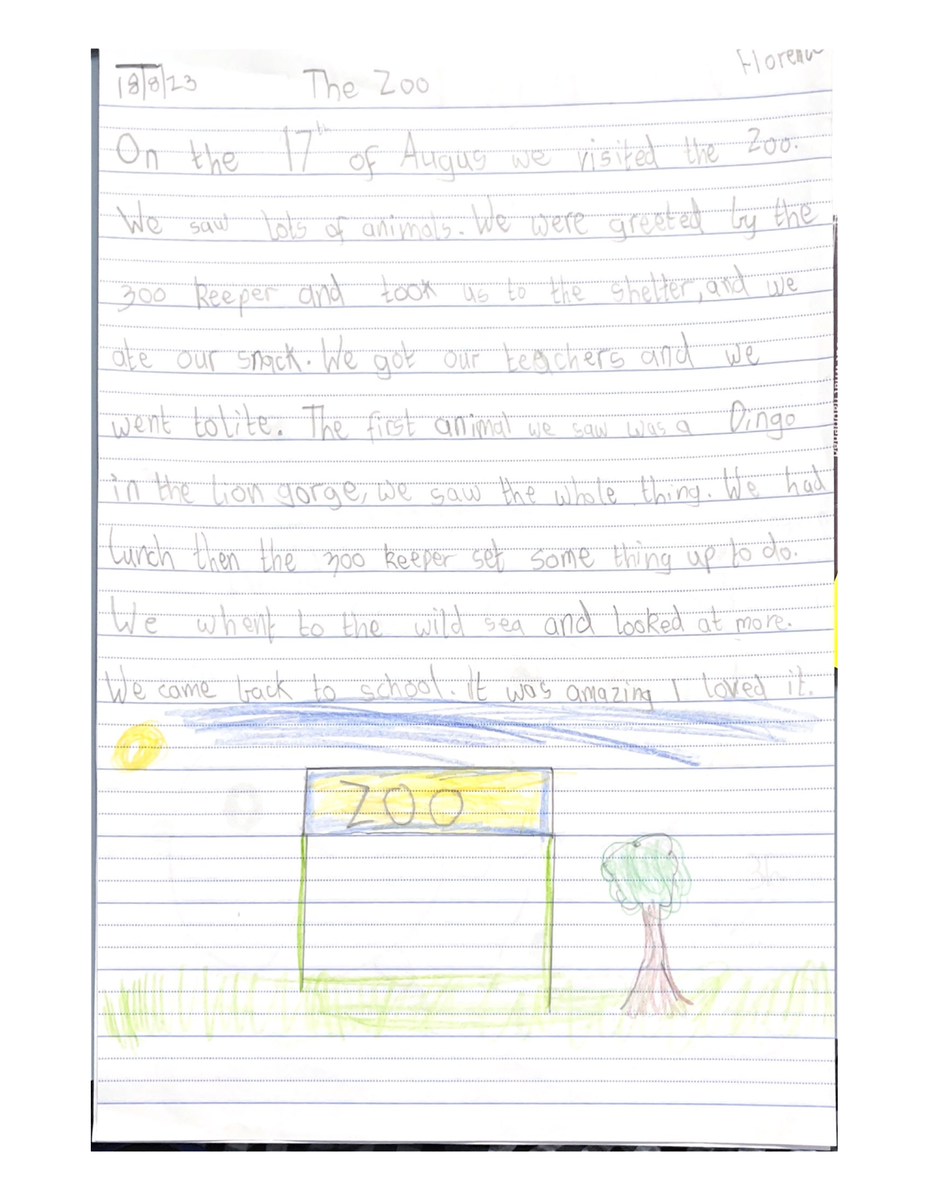 18/8/23 The Zoo Florenc
On the 17th of Augus we visited the Zoo.
We saw lots of animals. We were greeted by the
zoo keeper and took us to the shelter, and we
ate our snack. We got our teachers and we
went tolite. The first animal we saw was a Dingo
in the lion gorge, we saw the whole thing. We had
lunch then the zoo keeper set some thing up to do.
We whent to the wild sea and looked at more.
We came back to school. It was amazing I loved it.
ZOO